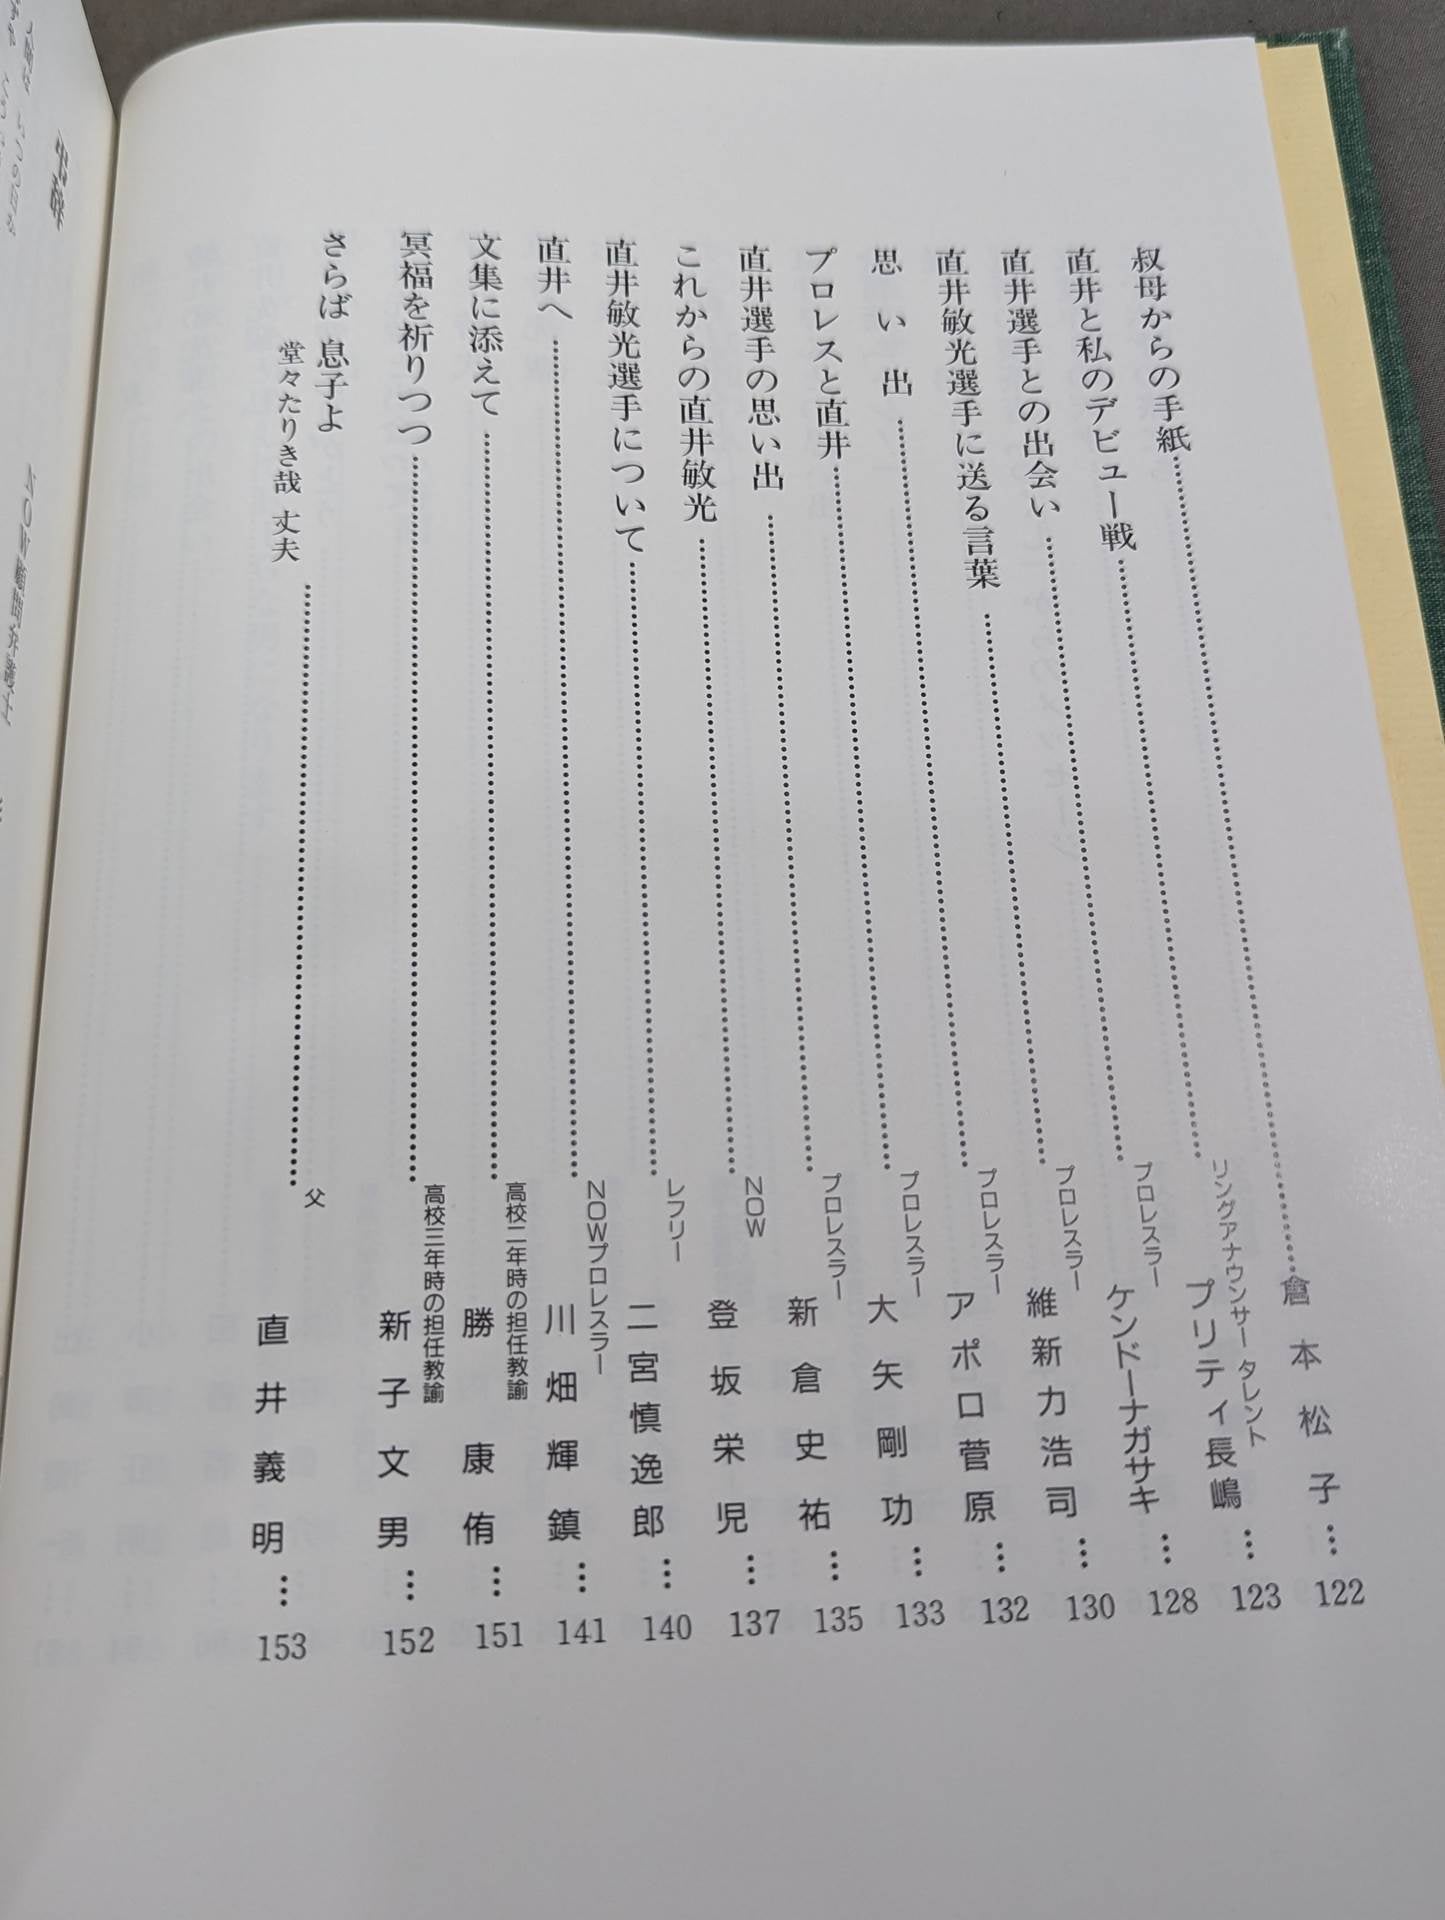 叔母からの手紙……倉本松子…122
直井と私のデビュー戦……リングアナウンサー タレント プリティ長嶋…123
直井選手との出会い……プロレスラー ケンドーナガサキ…128
直井敏光選手に送る言葉……プロレスラー 維新力浩司…130
思い出……プロレスラー アポロ菅原…132
プロレスと直井……プロレスラー 大矢剛功…133
直井選手の思い出……プロレスラー 新倉史祐…135
これからの直井敏光……NOW 登坂栄児…137
直井敏光選手について……レフリー 二宮慎逸郎…140
直井へ……NOWプロレスラー 川畑輝鎮…141
文集に添えて……高校二年時の担任教諭 勝康侑…151
冥福を祈りつつ……高校三年時の担任教諭 新子文男…152
さらば 息子よ
堂々たりき哉 丈夫……父 直井義明…153
弔辞
NOW顧問弁護士